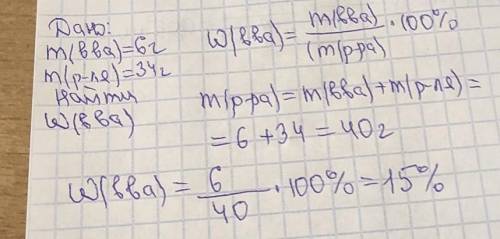 Дано:
m(вва)=6г
m(р-ля)=34г
Найти
W(вва)
W(вва)= m(вва)
(m(р-ра) ·100%
m(р-ра)=m(вва)+m(р-ля)=
=6+34=40г
W(вва)= 6
40 ·100%=15%